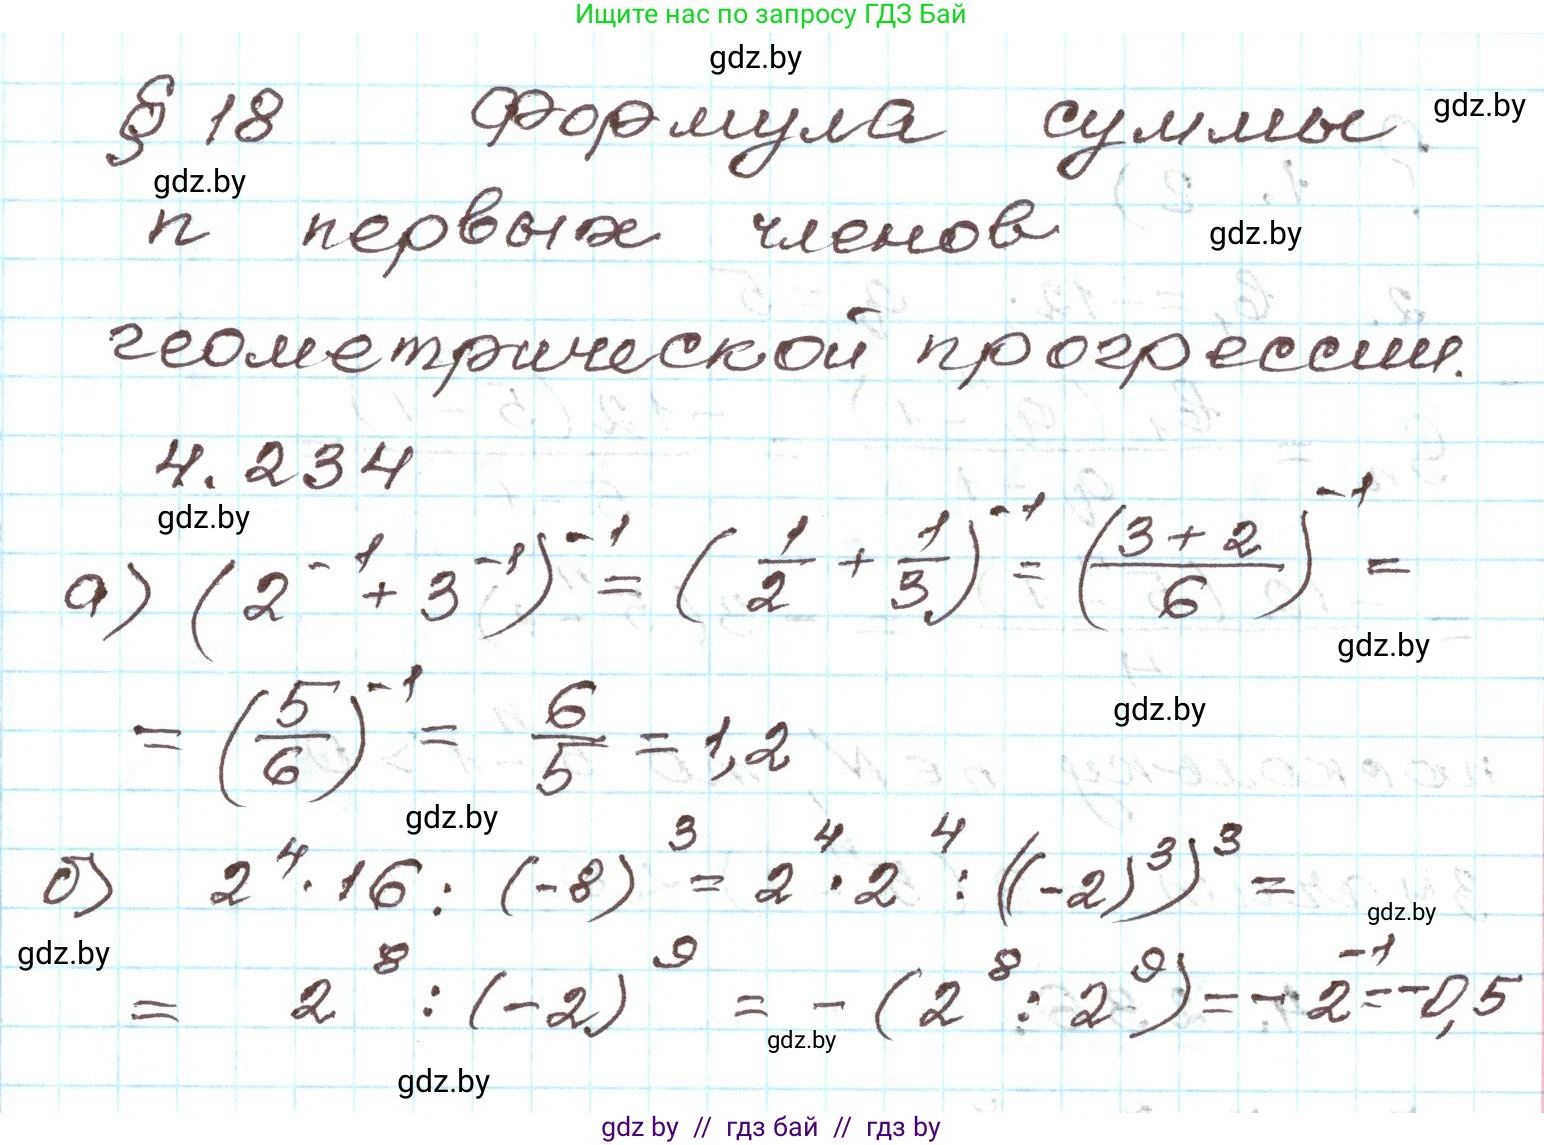 Ищите нас по запросу ГДЗ Бай
gdz.by
§ 18 Формула суммы
gdz.by
gdz.by
n первых членов
gdz.by
геометрической прогрессии.
4.234
gdz.by
а) (2⁻¹ + 3⁻¹)⁻¹ = (1/2 + 1/3)⁻¹ = ((3 + 2)/6)⁻¹ =
gdz.by
= (5/6)⁻¹ = 6/5 = 1,2
gdz.by
gdz.by
б) 2⁴ · 16 : (-8)³ = 2⁴ · 2⁴ : ((-2)³)³ =
gdz.by
gdz.by
= 2⁸ : (-2)⁹ = - (2⁸ : 2⁹) = - 2⁻¹ = -0,5
gdz.by
gdz.by
gdz.by // гдз бай // гдз by